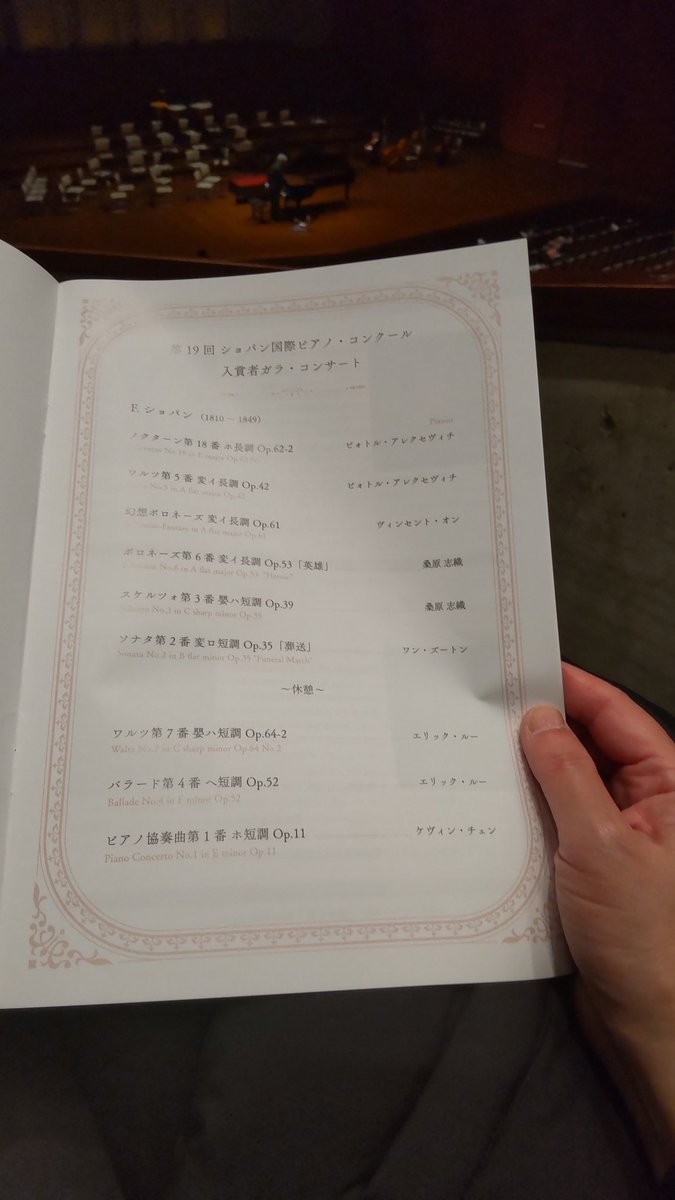 第19回 ショパン国際ピアノ・コンクール
入賞者ガラ・コンサート
F. ショパン (1810〜1849)
Pianist
ノクターン第18番 ホ長調 Op.62-2 ピォトル・アレクセヴィチ
No.18 in E major Op.62 No.2
ワルツ第5番 変イ長調 Op.42 ピォトル・アレクセヴィチ
No.5 in A flat major Op.42
幻想ポロネーズ 変イ長調 Op.61 ヴィンセント・オン
Polonaise-Fantasy in A flat major Op.61
ポロネーズ第6番 変イ長調 Op.53「英雄」 桑原 志織
Polonaise No.6 in A flat major Op.53 "Heroic"
スケルツォ第3番 嬰ハ短調 Op.39 桑原 志織
Scherzo No.3 in C sharp minor Op.39
ソナタ第2番 変ロ短調 Op.35「葬送」 ワン・ズートン
Sonata No.2 in B flat minor Op.35 "Funeral March"
〜休憩〜
ワルツ第7番 嬰ハ短調 Op.64-2 エリック・ルー
Waltz No.7 in C sharp minor Op.64 No.2
バラード第4番 ヘ短調 Op.52 エリック・ルー
Ballade No.4 in F minor Op.52
ピアノ協奏曲第1番 ホ短調 Op.11 ケヴィン・チェン
Piano Concerto No.1 in E minor Op.11